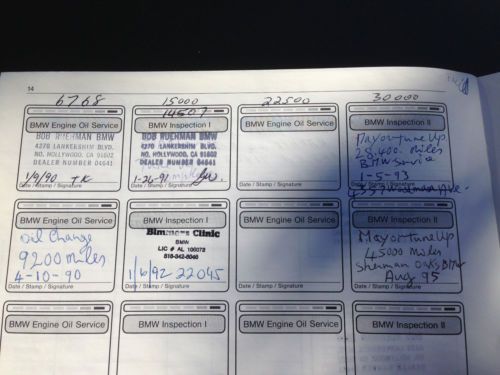 14
6768
15000
22500
30000
BMW Engine Oil Service
BOB ROEHMAN BMW
4270 LANKERSHIM BLVD.
NO. HOLLYWOOD, CA 91602
DEALER NUMBER 04641
1/9/90 TK
Date / Stamp / Signature
14507
BMW Inspection I
BOB ROEHMAN BMW
4270 LANKERSHIM BLVD.
NO. HOLLYWOOD, CA 91602
DEALER NUMBER 04641
1-26-91
Date / Stamp / Signature
BMW Engine Oil Service
Date / Stamp / Signature
BMW Inspection II
Mayor tune up
28,400. miles
BMW Service
1-5-93
Date / Stamp / Signature
BMW Engine Oil Service
Oil Change
9200 miles
4-10-90
Date / Stamp / Signature
BMW Inspection I
Bimmers Clinic
BMW
LIC # AL 100072
818-342-8040
1/6/92 22045
Date / Stamp / Signature
BMW Engine Oil Service
Date / Stamp / Signature
BMW Inspection II
Mayor tune up
45000 miles
Sherman Oaks BMW
Aug 95
Date / Stamp / Signature
BMW Engine Oil Service
Date / Stamp / Signature
BMW Inspection I
Date / Stamp / Signature
BMW Engine Oil Service
Date / Stamp / Signature
BMW Inspection II
Date / Stamp / Signature